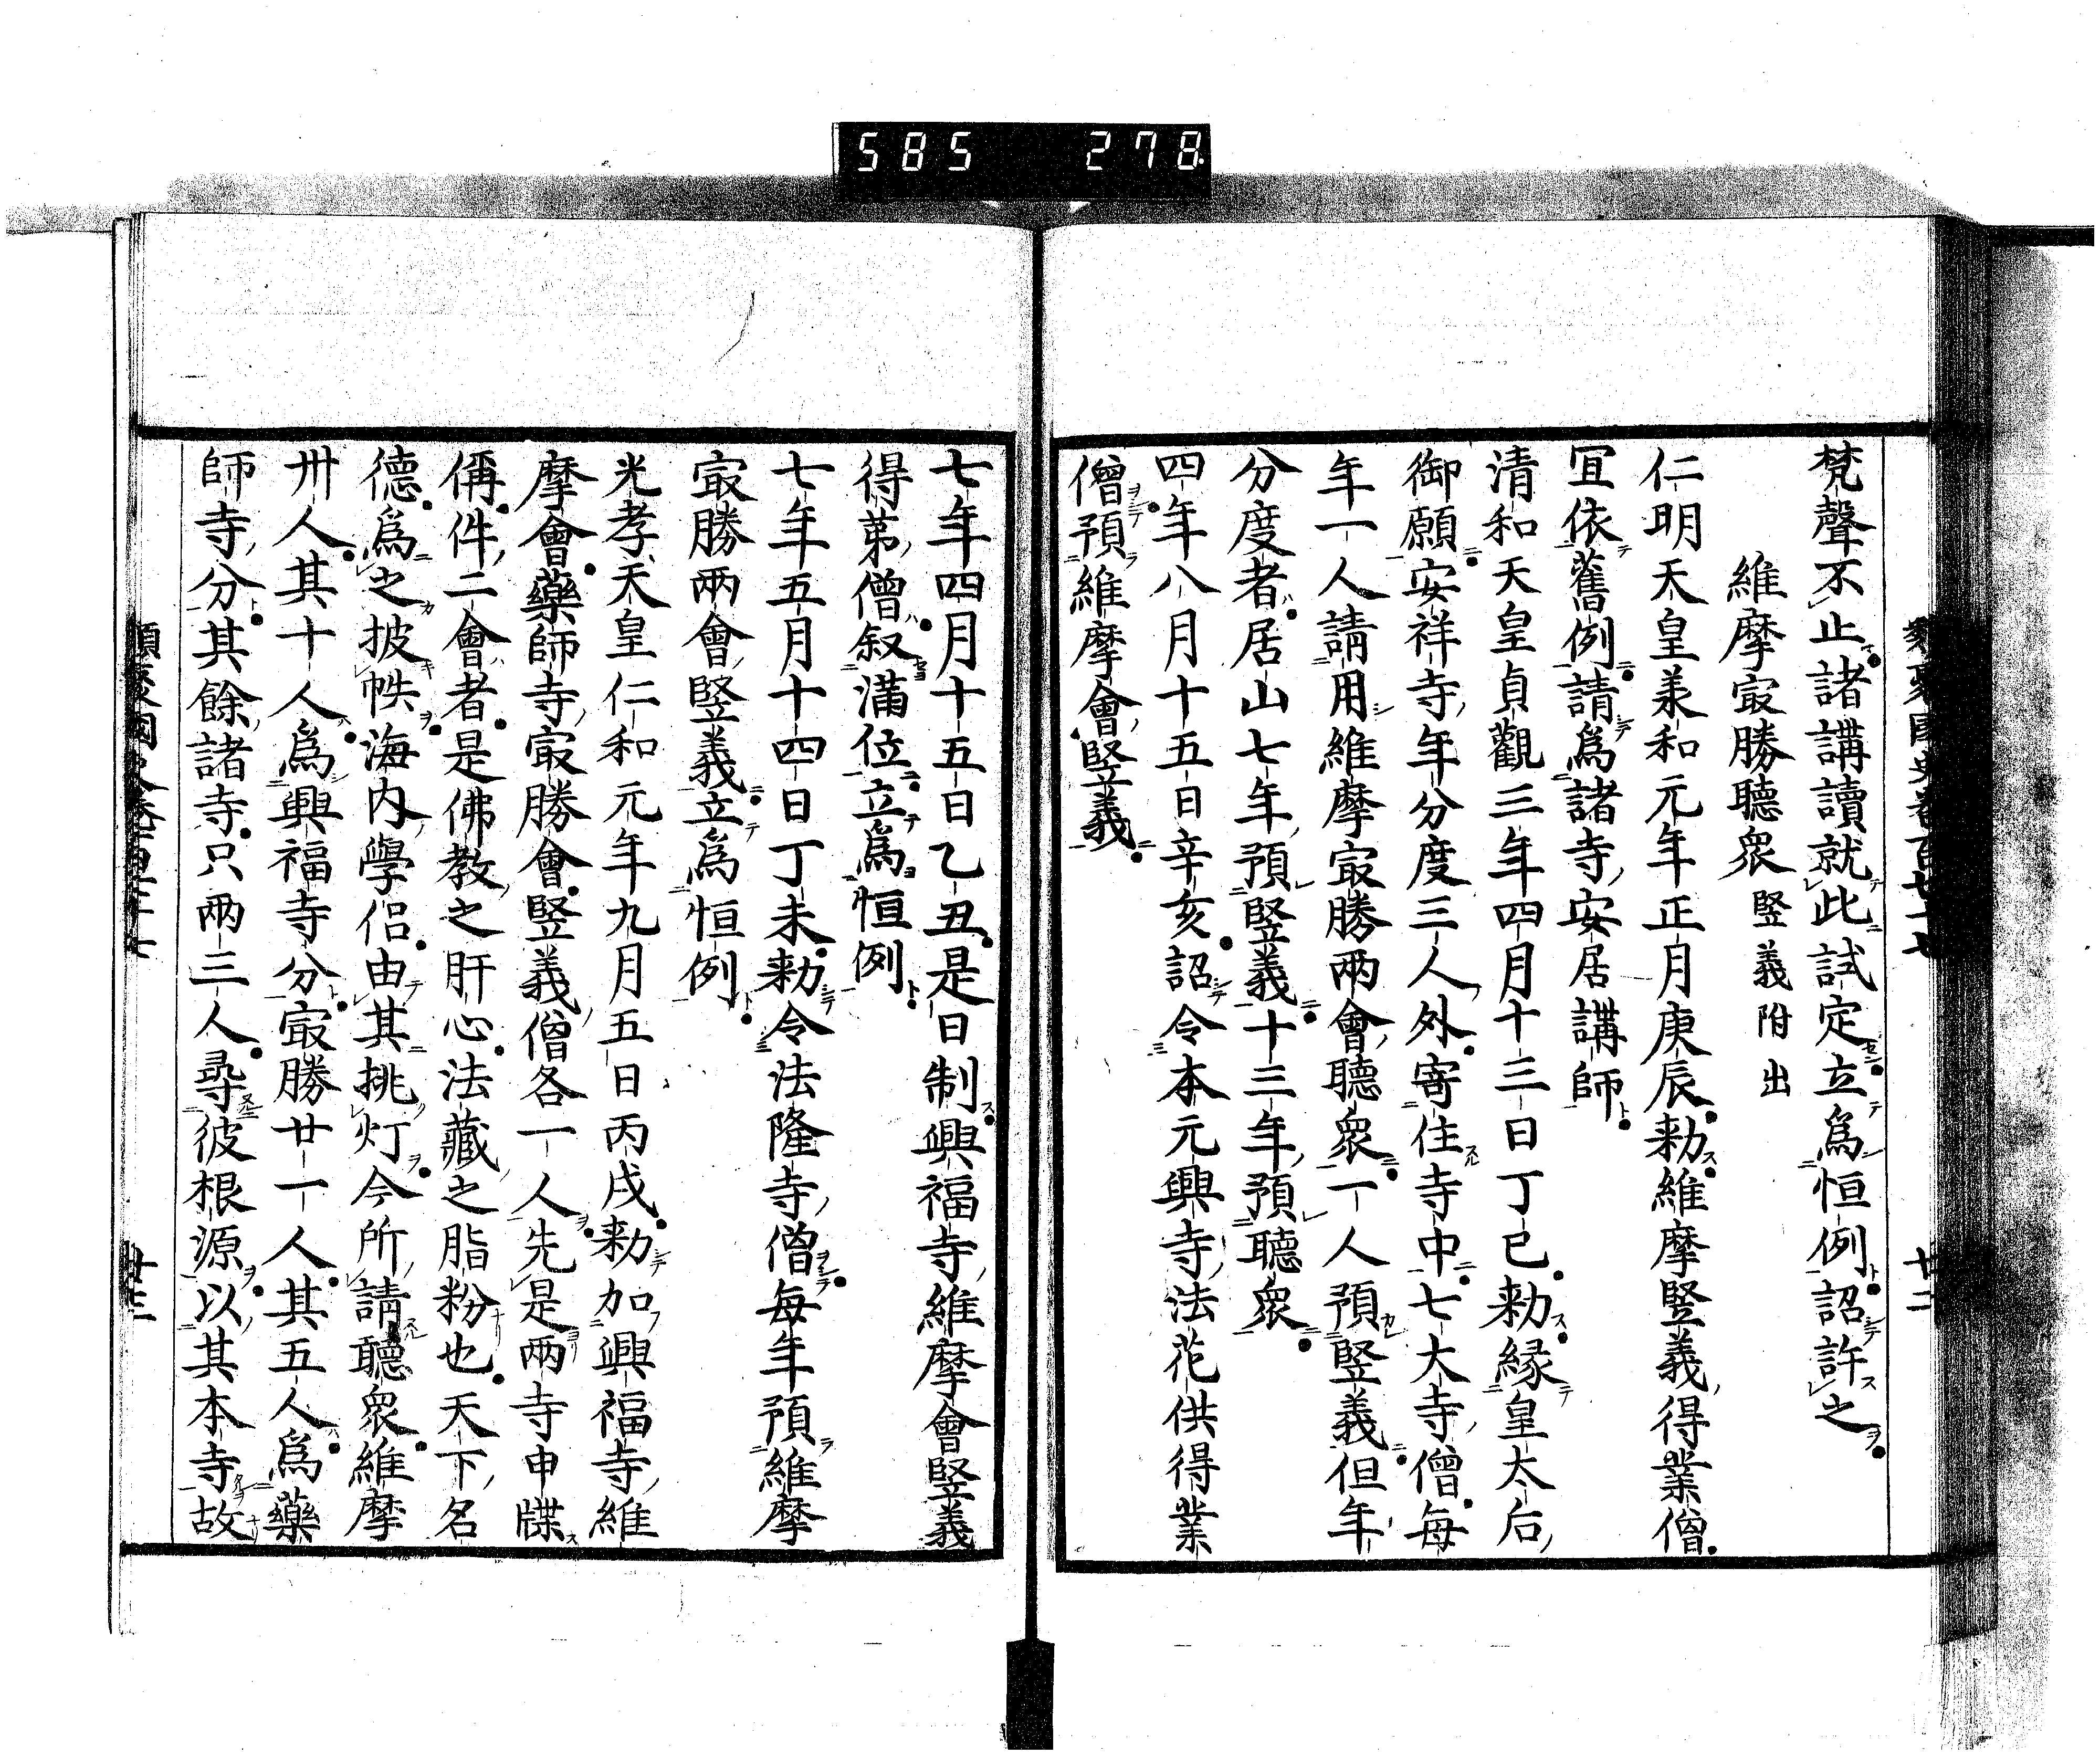 585 278
梵聲不止諸講讀就此試定立爲恒例詔許之
維摩㝡勝聽衆 竪義附出
仁明天皇羕和元年正月庚辰勅維摩竪義得業僧
冝依舊例請爲諸寺安居講師
清和天皇貞觀三年四月十三日丁巳勅縁皇太后
御願安祥寺年分度三人外寄住寺中七大寺僧每
年一人請用維摩㝡勝兩會聽衆一人預竪義但年
分度者居山七年預竪義十三年預聽衆
四年八月十五日辛亥詔令本元興寺法花供得業
僧預維摩會竪義
廿二
七年四月十五日乙丑是日制興福寺維摩會竪義
得第僧叙滿位立爲恒例
七年五月十四日丁未勅令法隆寺僧每年預維摩
㝡勝兩會竪義立爲恒例
光孝天皇仁和元年九月五日丙戌勅加興福寺維
摩會藥師寺㝡勝會竪義僧各一人先是兩寺申牒
偁件二會者是佛教之肝心法藏之脂粉也天下名
德爲之披帙海内學侣由其挑灯今所請聽衆維摩
卅人其十人爲興福寺分㝡勝廿一人其五人爲藥
師寺分其餘諸寺只兩三人尋彼根源以其本寺故
廿三